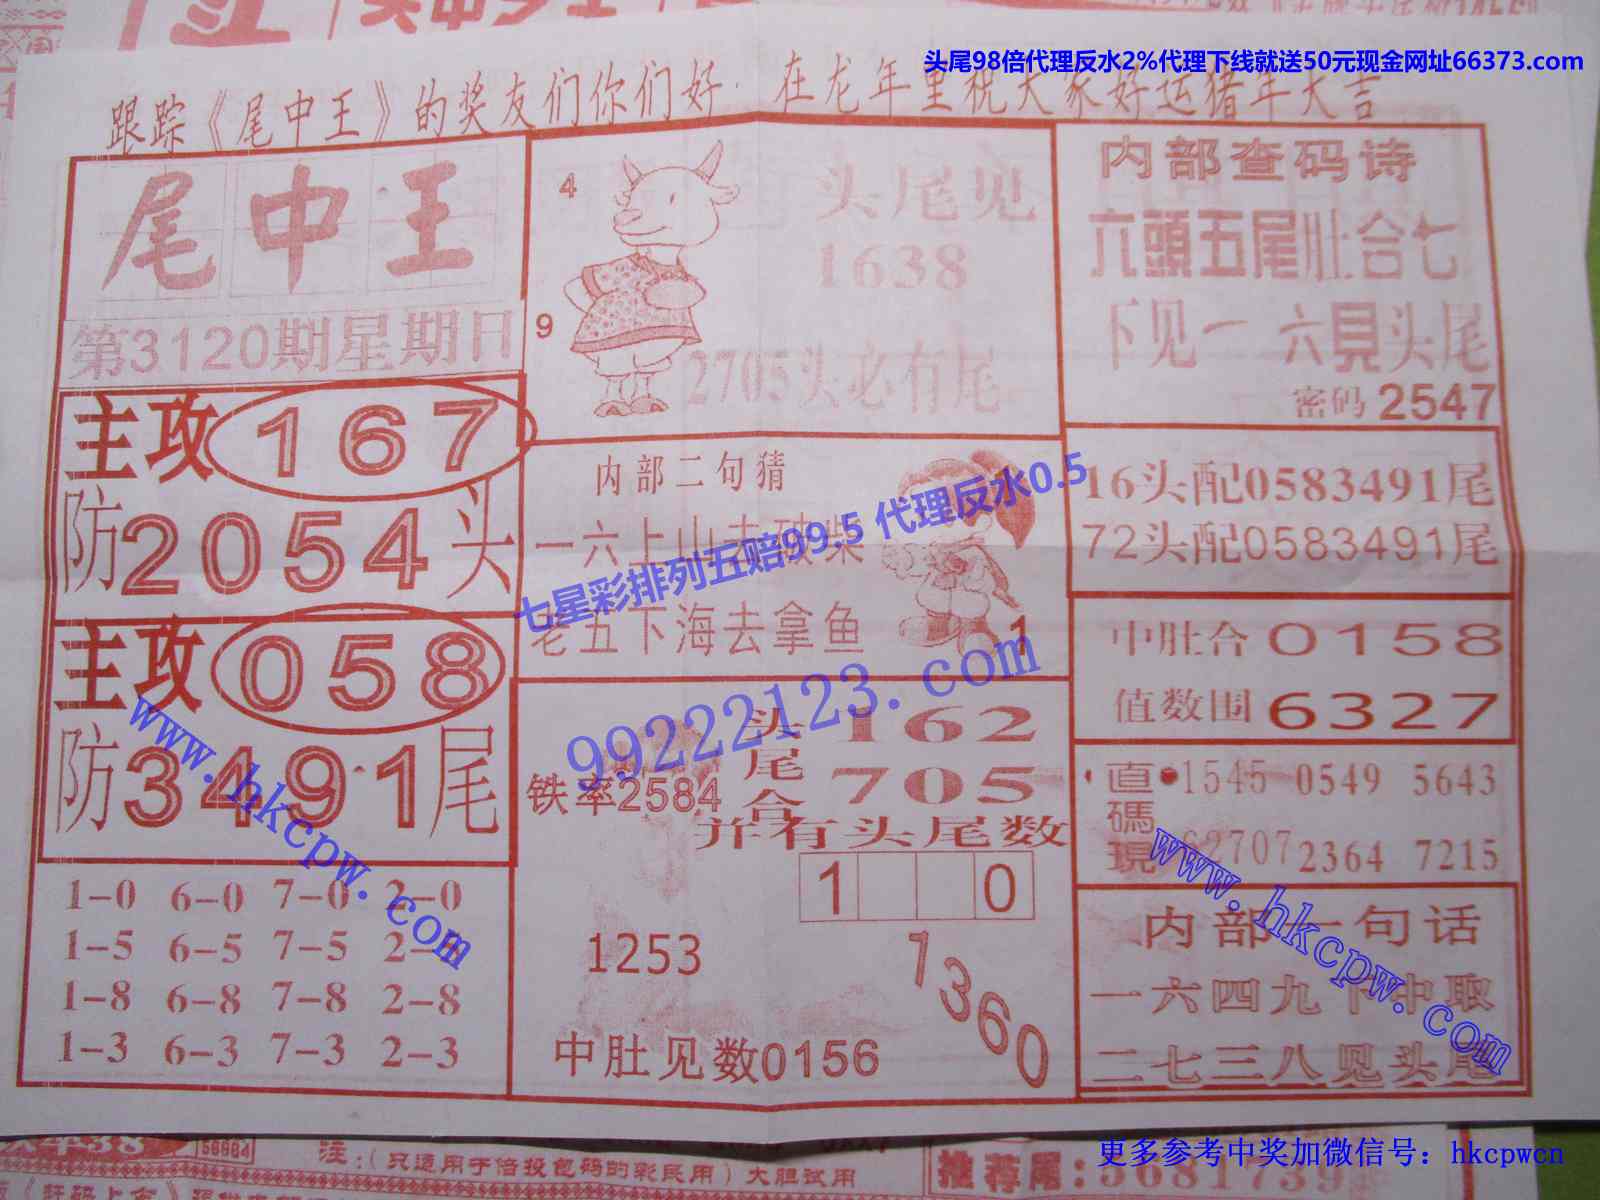 头尾98倍代理反水2%代理下线就送50元现金网址66373.com
跟踪《尾中王》的奖友们你们好 在龙年里祝大家好运猪年大吉
尾中王
第3120期星期日
主攻 167
防2054头
主攻 058
防3491尾
1-0 6-0 7-0 2-0
1-5 6-5 7-5 2-5
1-8 6-8 7-8 2-8
1-3 6-3 7-3 2-3
4
9
头尾见
1638
2705头必有尾
内部二句猜
一六上山去破柴
老五下海去拿鱼
1
七星彩排列五赔99.5 代理反水0.5
99222123.com
铁率2584
头 162
尾 705
合
并有头尾数
1 0
1253
7360
中肚见数0156
内部查码诗
六頭五尾肚合七
下见一六見头尾
密码 2547
16头配0583491尾
72头配0583491尾
中肚合 0158
值数围 6327
直碼現
1545 0549 5643
2707 2364 7215
内部一句话
一六四九下中取
二七三八见头尾
www.hkcpw.com
www.hkcpw.com
56664
注:(只适用于倍投包码的彩民用)大胆试用
推荐尾:5681739
更多参考中奖加微信号：hkcpwcn